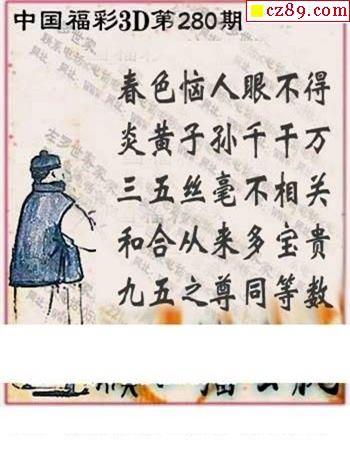 cz89.com
中国福彩3D第280期
春色恼人眼不得
炎黄子孙千千万
三五丝毫不相关
和合从来多宝贵
九五之尊同等数